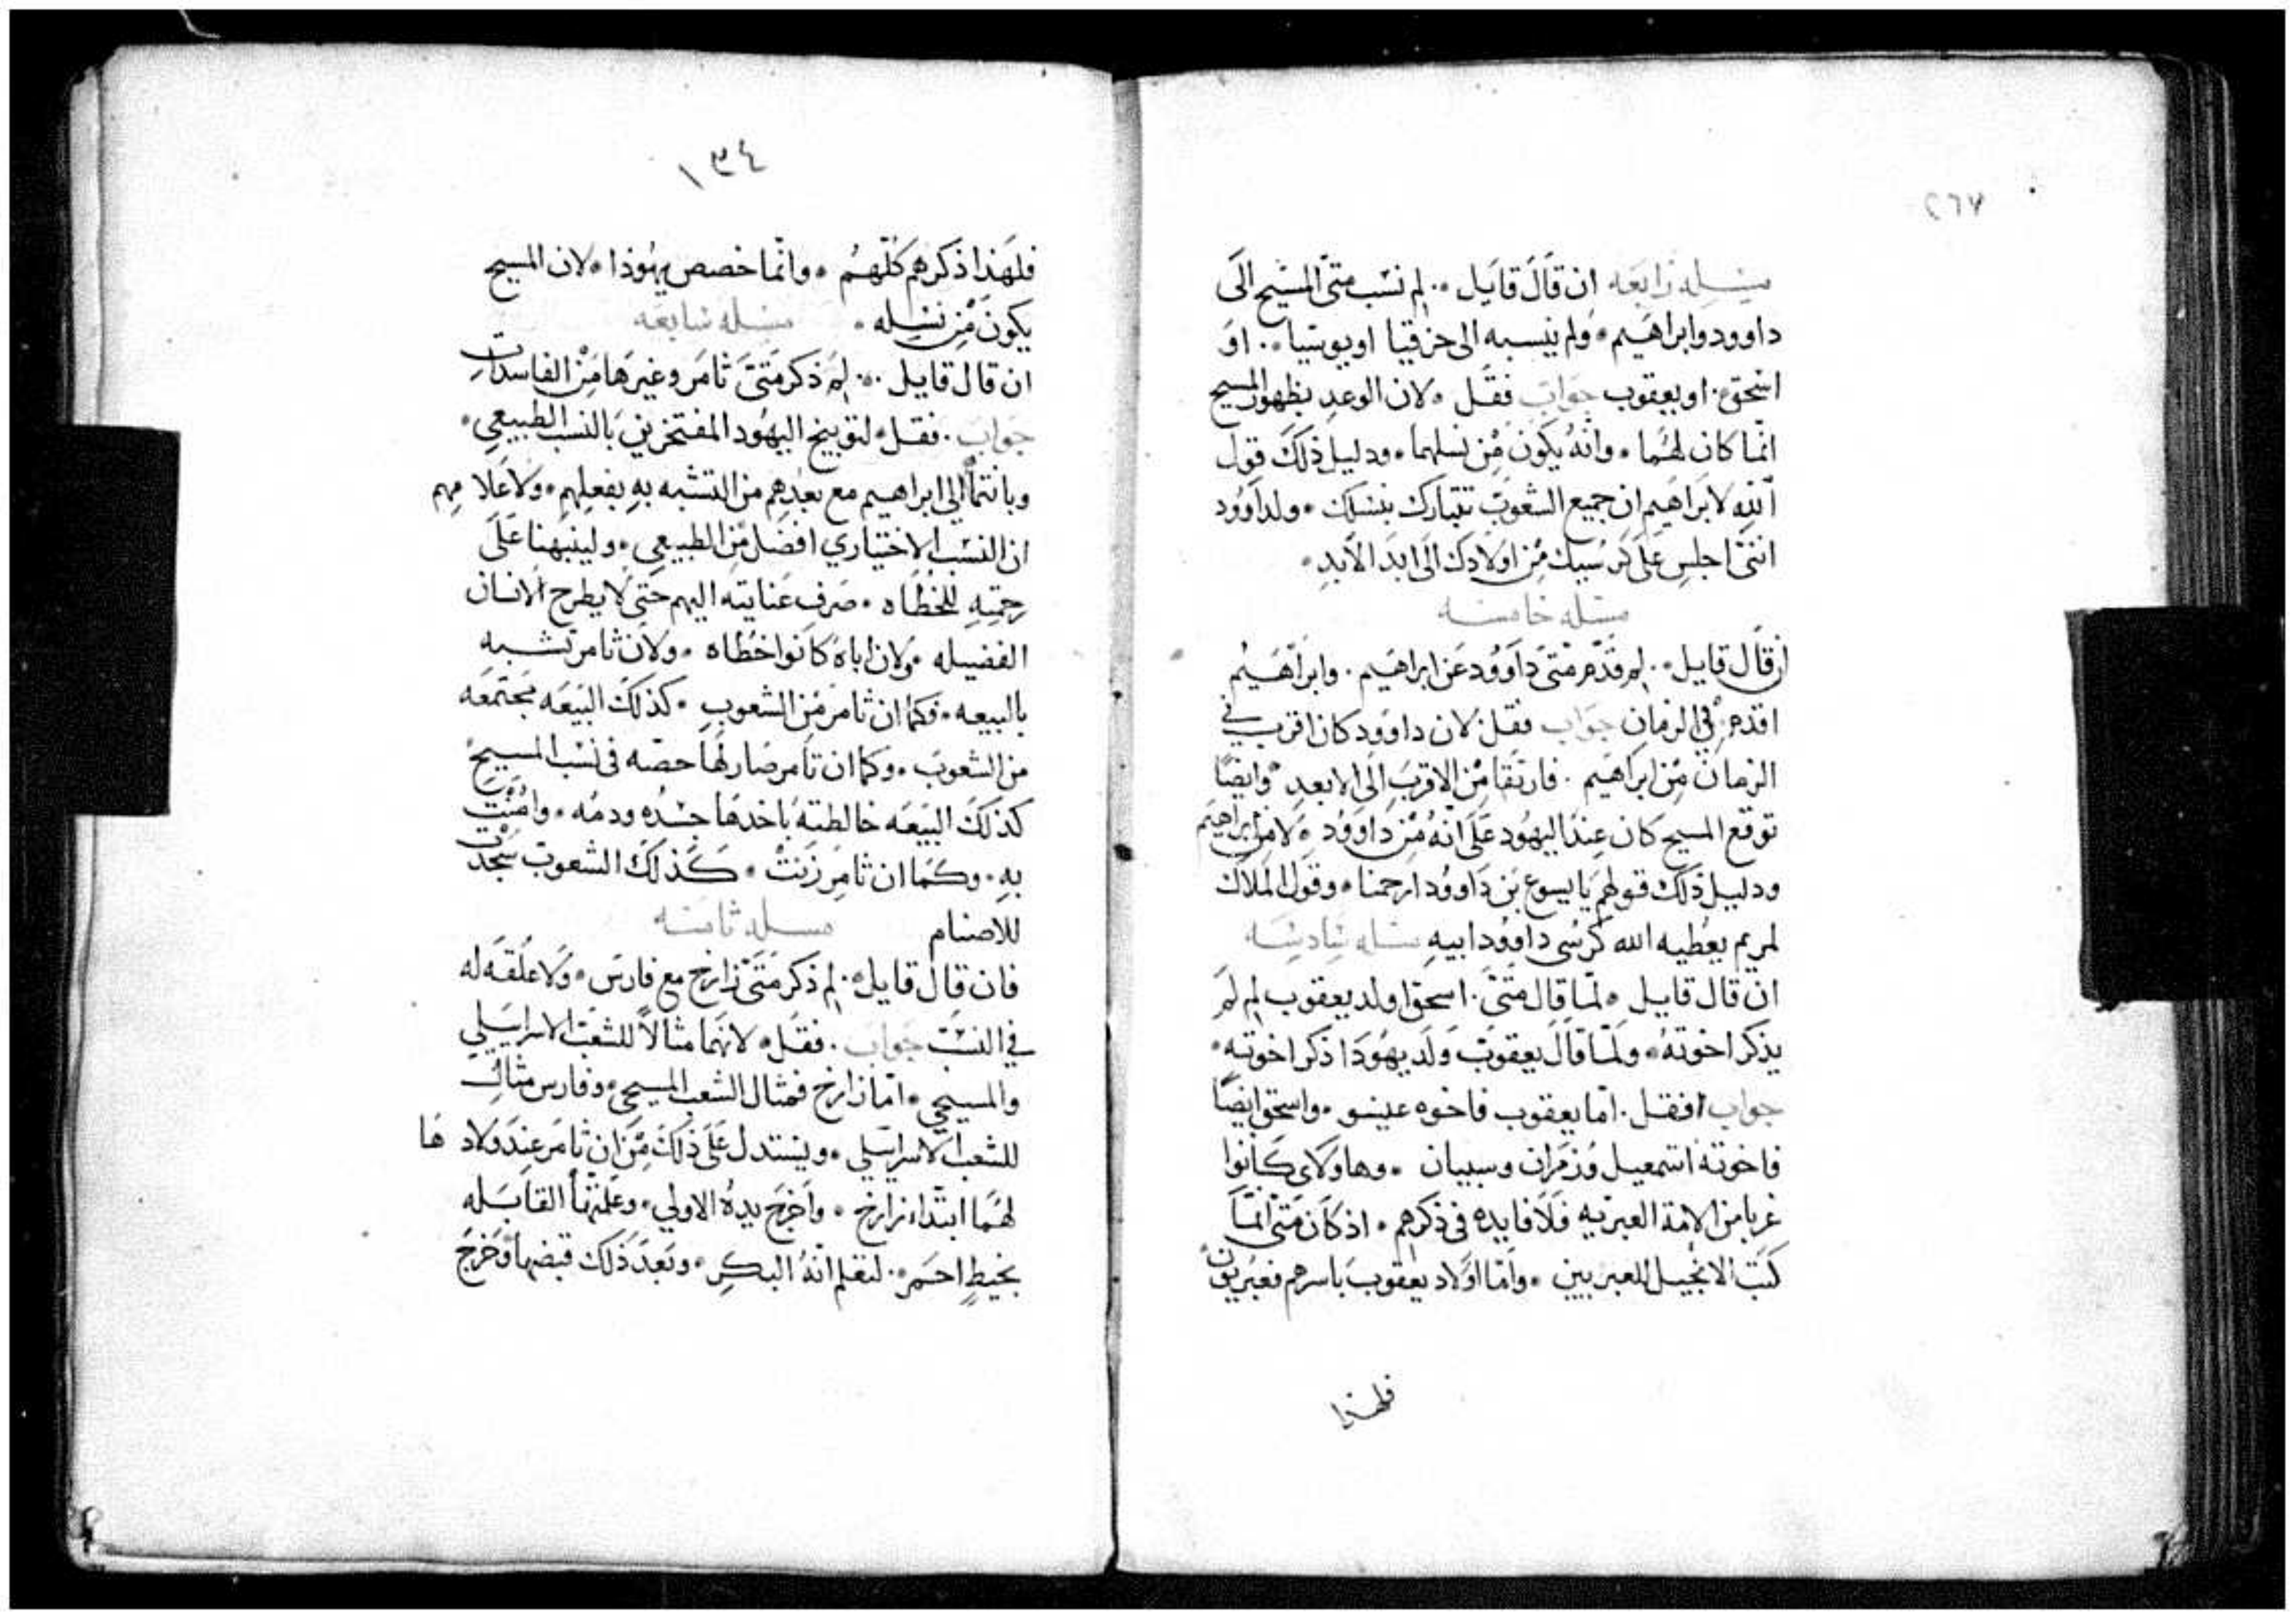 ٢٦٧
مسىله رابعه ان قال قايل ۰ لم نسب متى المسيح الى
داوود وابراهيم ۰ ولم ينسبه الى حزقيا او يوشيا ۰ او
اسحق ۰ او يعقوب جواب فقل ۰ لان الوعد بظهور المسيح
انما كان لهما ۰ وانه يكون من نسلهما ۰ ودليل ذلك قول
الله لابراهيم ان جميع الشعوب تتبارك بنسلك ۰ ولداوود
انني اجلس على كرسيك من اولادك الى ابد الابد ۰
مسله خامسه
ان قال قايل ۰ لم قدم متى داوود عن ابراهيم ۰ وابراهيم
اقدم في الزمان جواب فقل لان داوود كان اقرب في
الزمان من ابراهيم ۰ فارتقا من الاقرب الى الابعد ۰ وايضا
توقع المسيح كان عند اليهود على انه من داوود ۰ لا من ابراهيم
ودليل ذلك قولهم يا يسوع بن داوود ارحمنا ۰ وقول الملاك
لمريم يعطيه الله كرسي داوود ابيه مسله سادسه
ان قال قايل ۰ لما قال متى ۰ اسحق اولد يعقوب لم لم
يذكر اخوته ۰ ولما قال يعقوب ولد يهودا ذكر اخوته ۰
جواب فقل ۰ اما يعقوب فاخوه عيسو ۰ واسحق ايضا
فاخوته اسمعيل وزمران وسبيان ۰ وهاولاى كانوا
غربا من الامة العبرنيه فلا فايده في ذكرهم ۰ اذ كان متى انما
كتب الانجيل للعبريين ۰ واما اولاد يعقوب باسرهم فعبريون
فلهذا
١٣٤
فلهذا ذكرهم كلهم ۰ وانما خصص يهوذا ۰ لان المسيح
يكون من نسله ۰ مسله سابعه
ان قال قايل ۰ لم ذكر متى ثامر وغيرها من الفاسدات
جواب ۰ فقل ۰ لتوبيخ اليهود المفتخرين بالنسب الطبيعي ۰
وبانتما الى ابراهيم مع بعدهم من التشبه به بفعلهم ۰ ولاعلامهم
ان النسب الاختياري افضل من الطبيعي ۰ ولينبهنا على
رحمته للخطاه ۰ صرف عنايته اليهم حتى لا يطرح الانسان
الفضيله ۰ ولان اباه كانوا خطاه ۰ ولان ثامر تشبه
بالبيعه ۰ فكما ان ثامر من الشعوب ۰ كذلك البيعه مجتمعه
من الشعوب ۰ وكما ان ثامر صار لها حصه في نسب المسيح
كذلك البيعه خالطته باخدها جسده ودمه ۰ وامنت
به ۰ وكما ان ثامر زنت ۰ كذلك الشعوب سجدت
للاصنام مسله ثامنه
فان قال قايل ۰ لم ذكر متى زارح مع فارس ۰ ولا علقه له
في النسب جواب ۰ فقل ۰ لانهما مثالا للشعب الاسرايلي
والمسيحي ۰ اما زارح فمثال الشعب المسيحي ۰ وفارس مثال
للشعب الاسرايلي ۰ ويستدل على ذلك من ان ثامر عند ولادها
لهما ابتدا زارح ۰ واخرج يده الاولي ۰ وعلمتها القابله
بخيط احمر ۰ لتعلم انه البكر ۰ وبعد ذلك قبضها وخرج